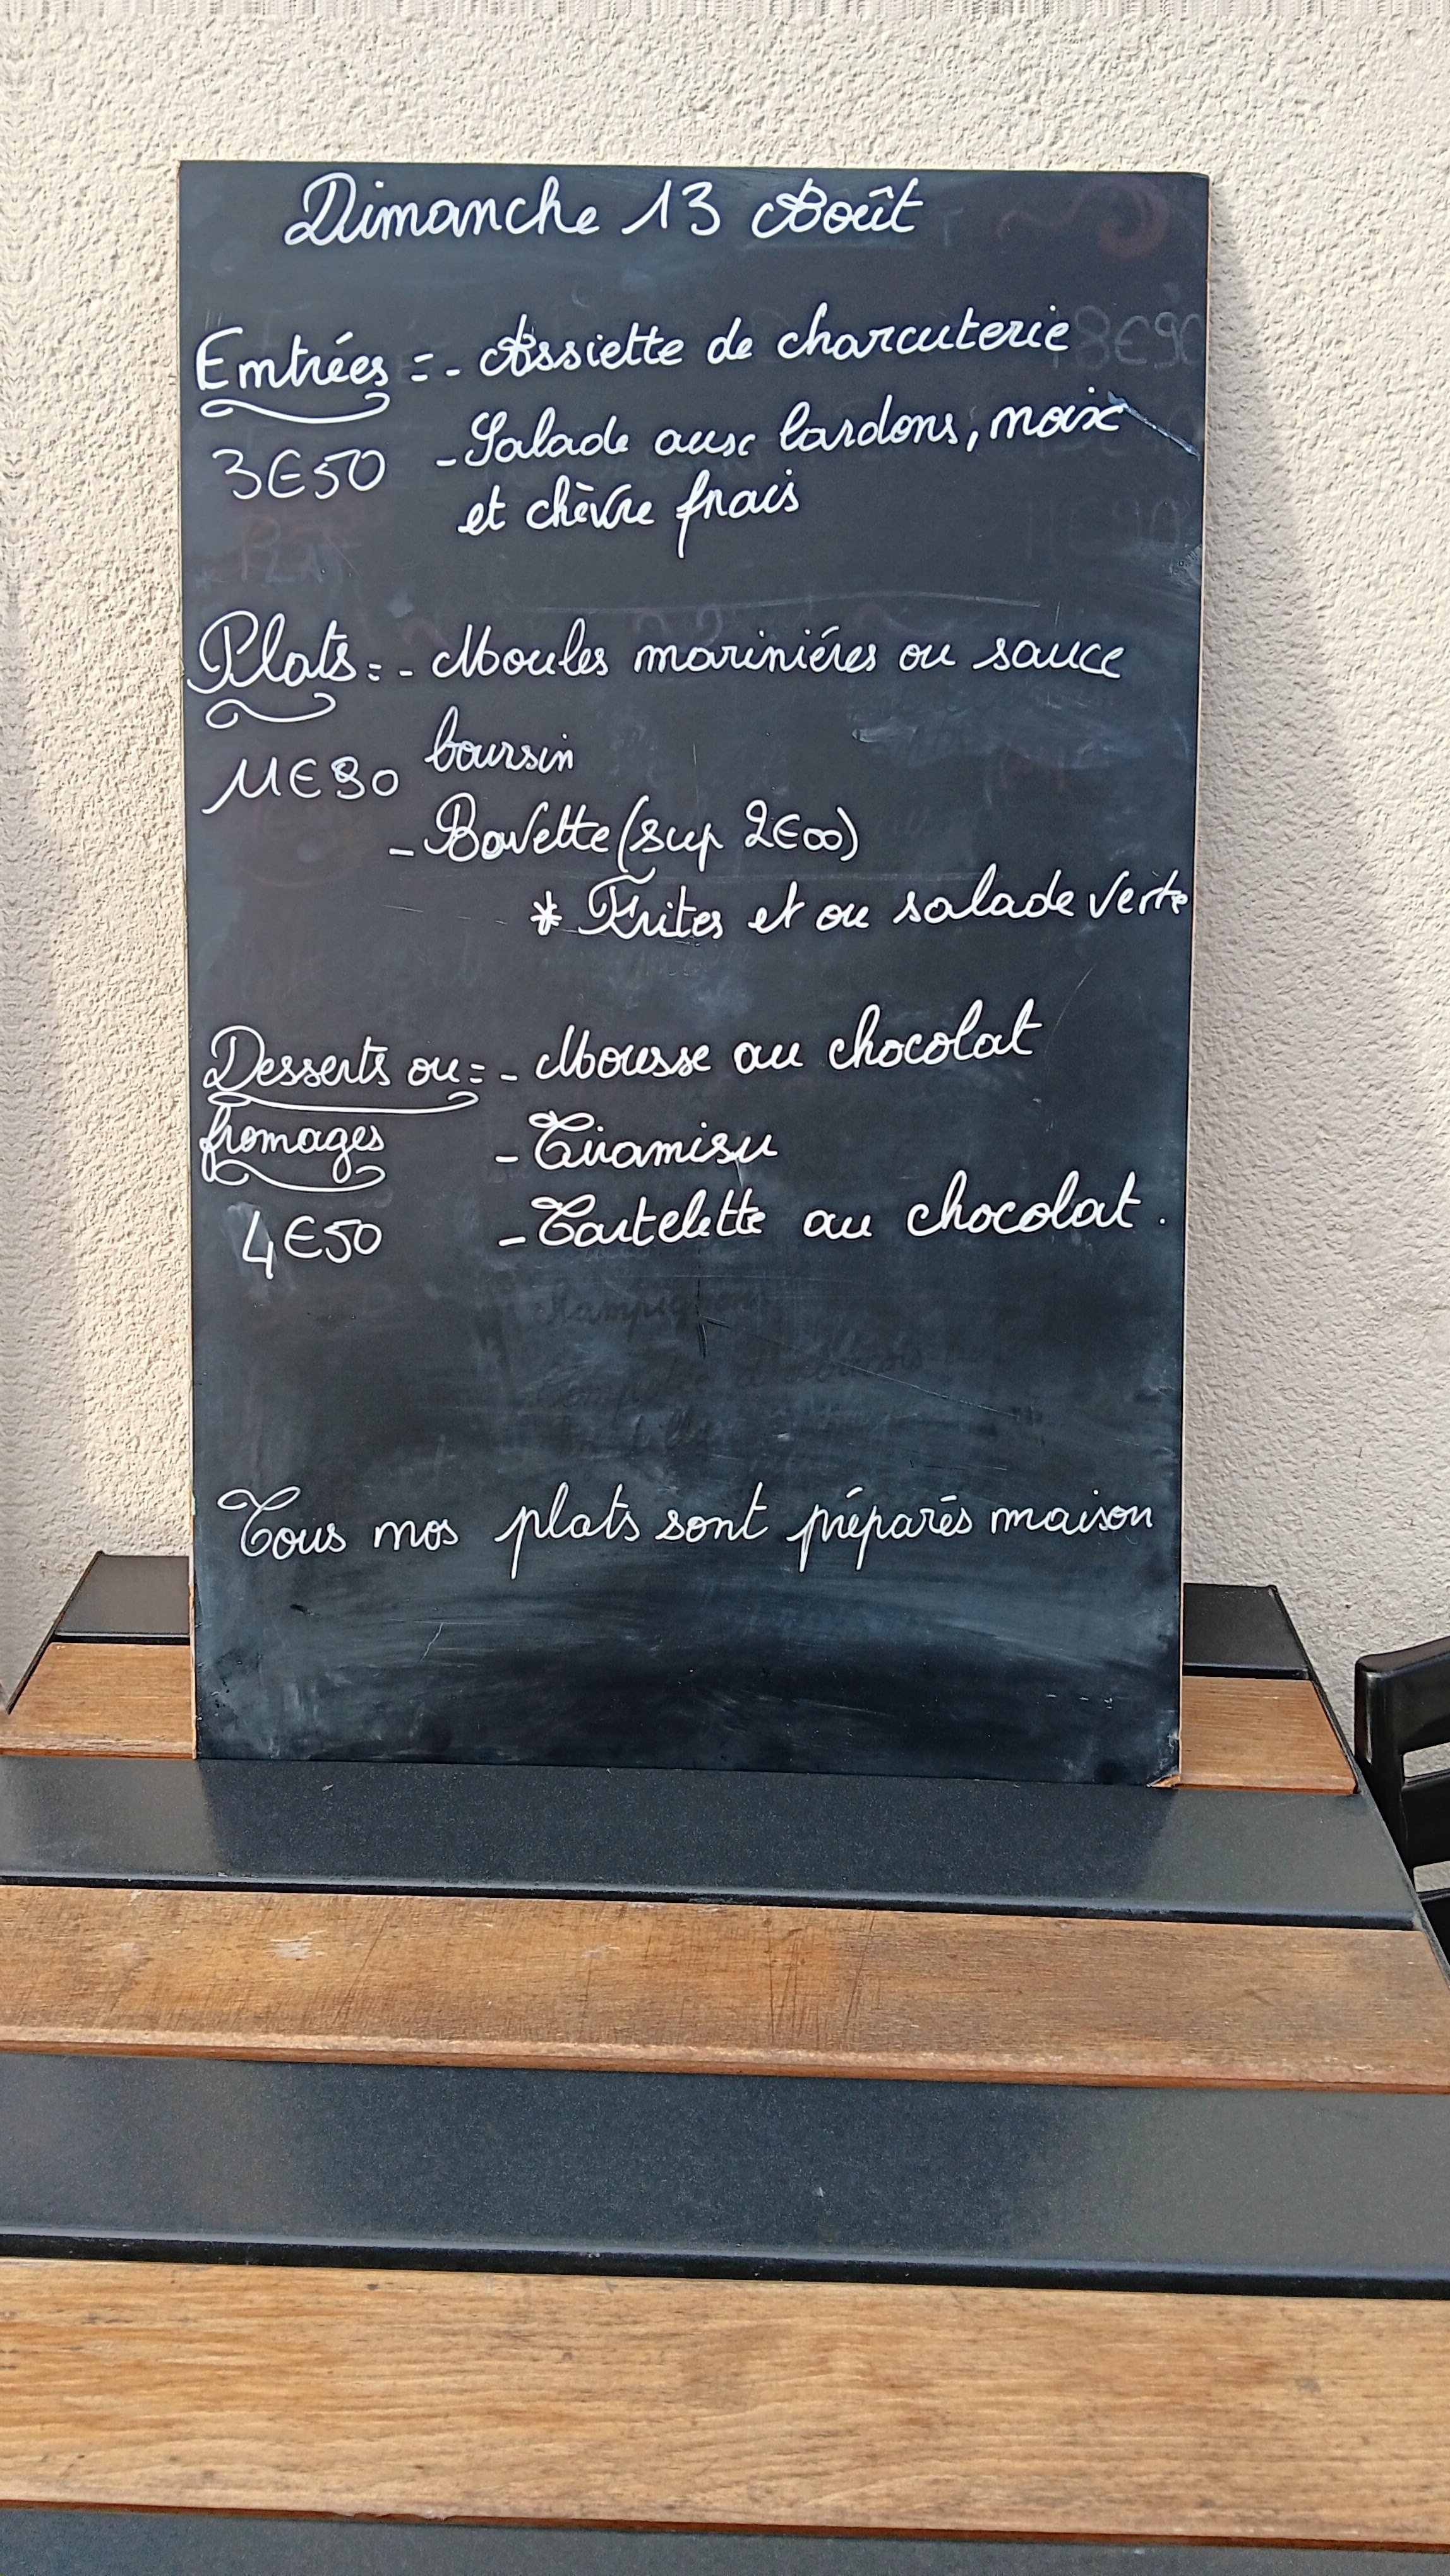 Dimanche 13 Août
Entrées = - Assiette de charcuterie
3€50 - Salade aux lardons, noix
et chèvre frais
Plats = - Moules mariniéres ou sauce
11€90 boursin
- Bavette (sup 2€00)
* Frites et ou salade verte
Desserts ou = - Mousse au chocolat
fromages - Tiramisu
4€50 - Tartelette au chocolat.
Tous nos plats sont préparés maison